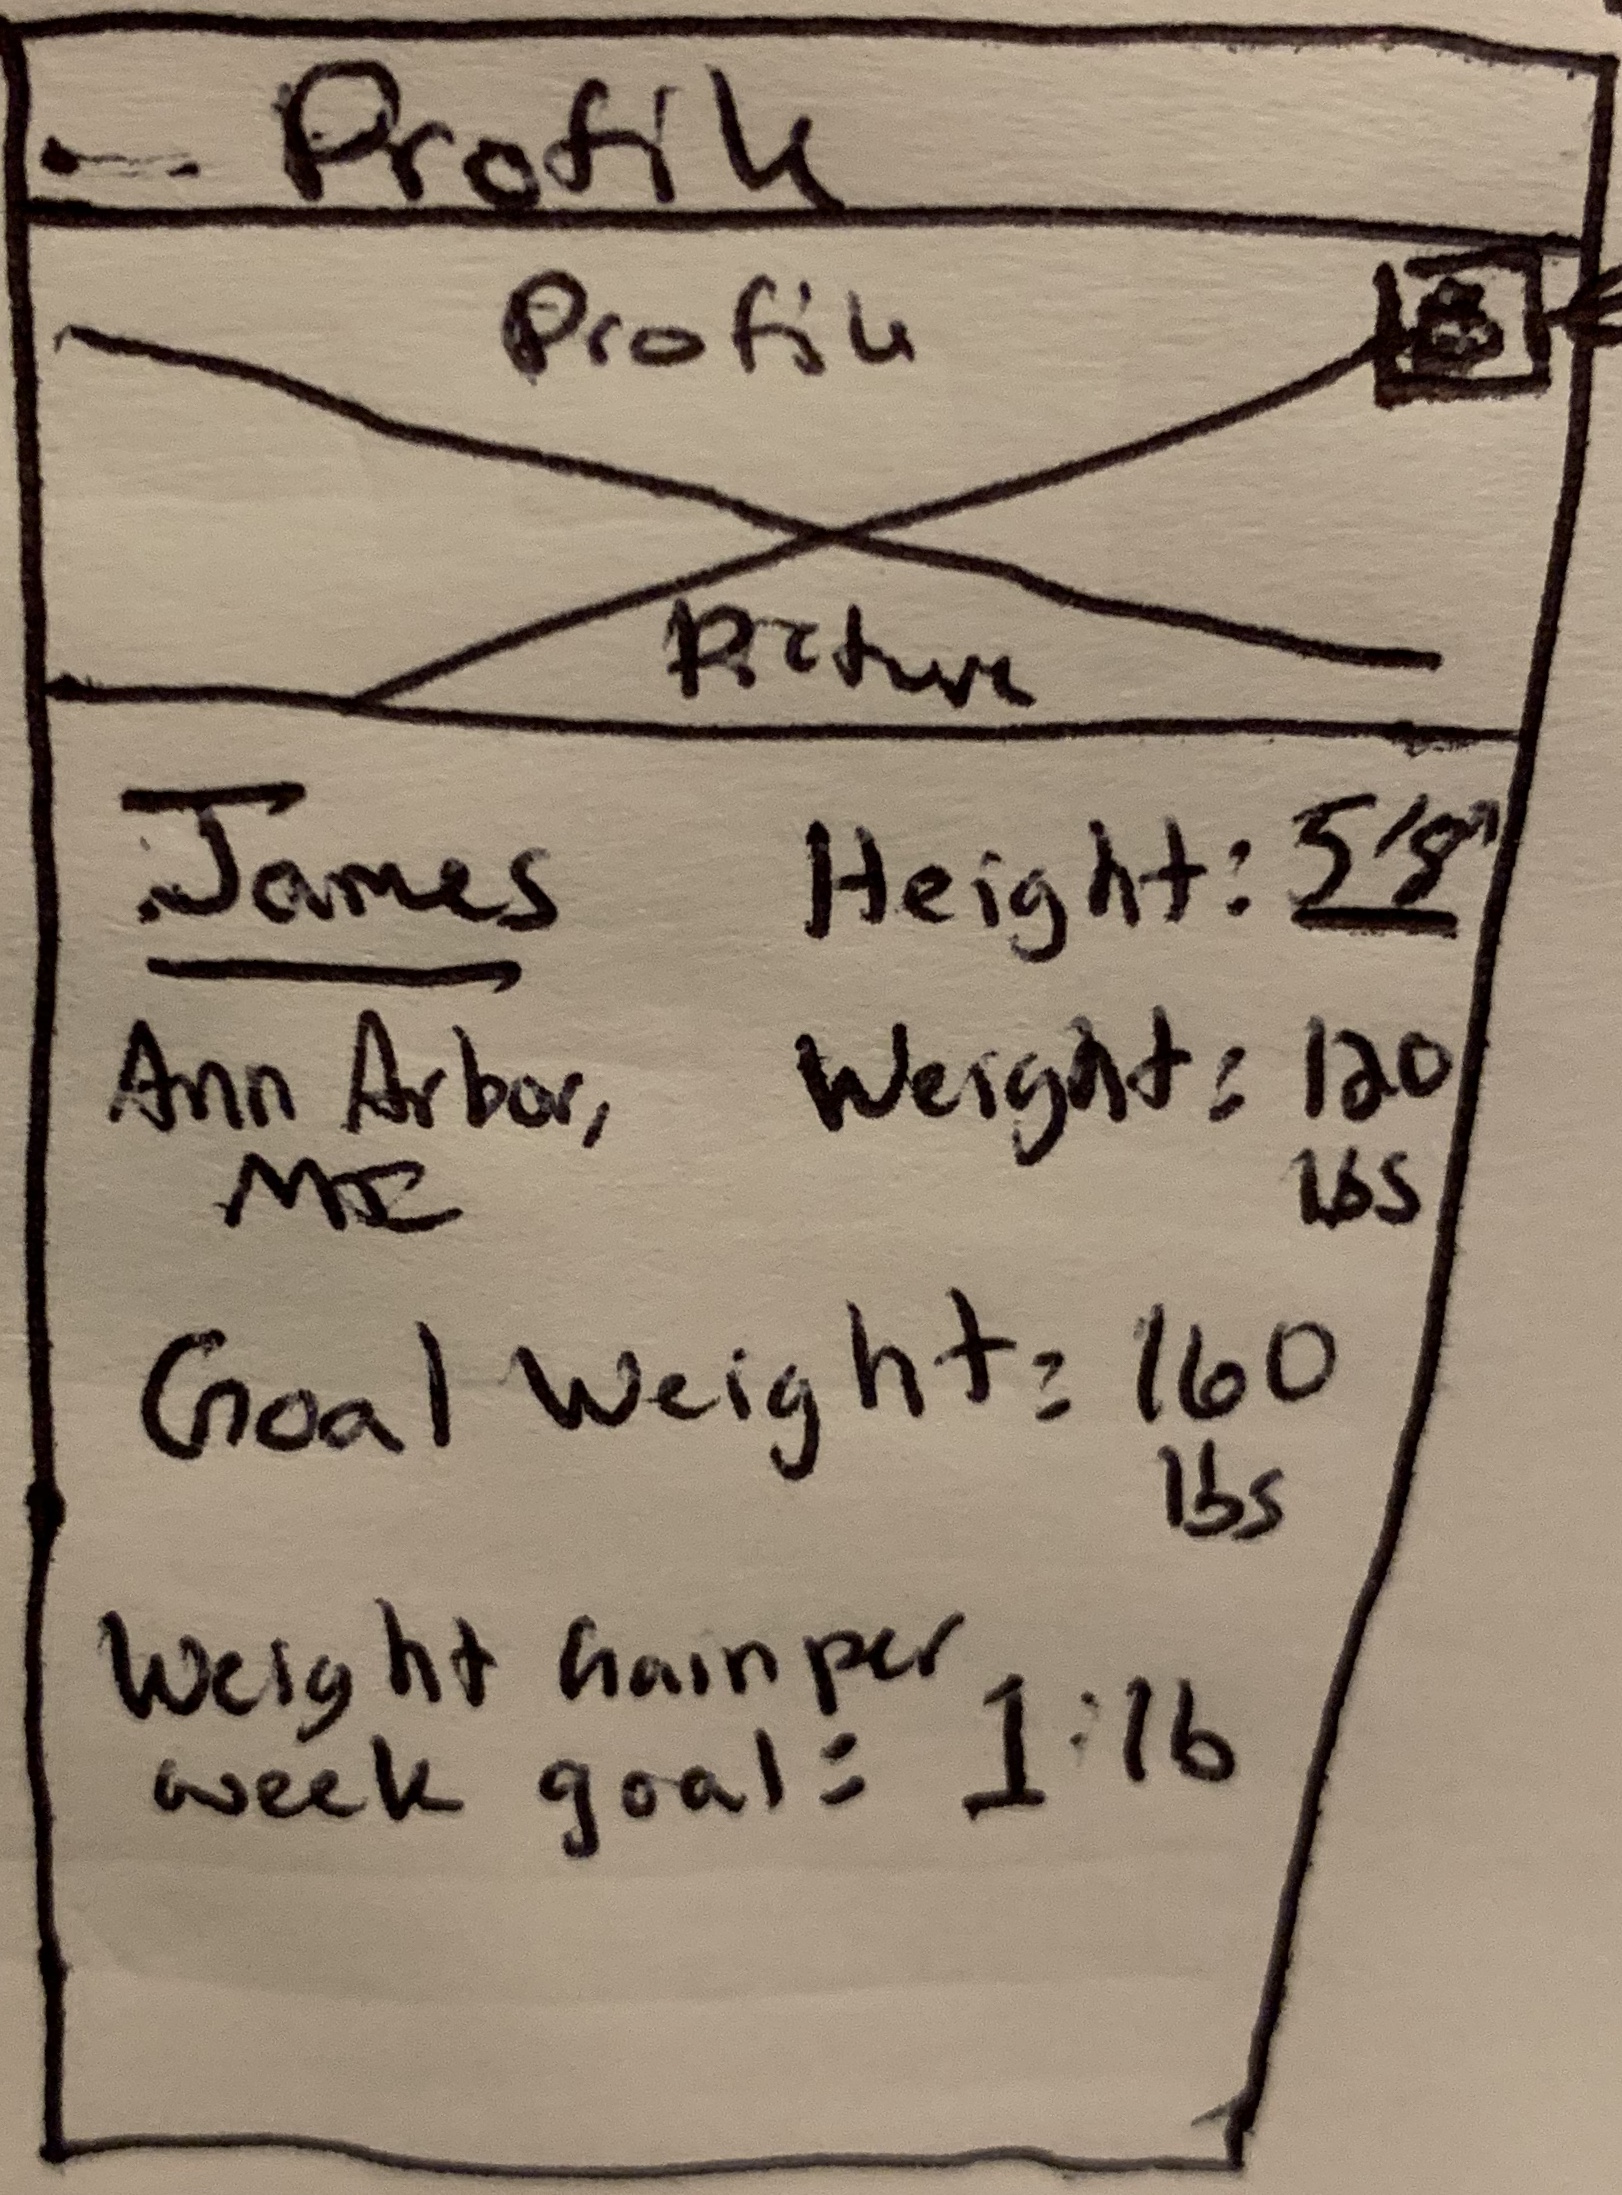 Profile
Profile
Picture
James
Height: 5'8"
Ann Arbor,
MI
Weight: 120
lbs
Goal Weight: 160
lbs
Weight Gain per
week goal: 1 lb